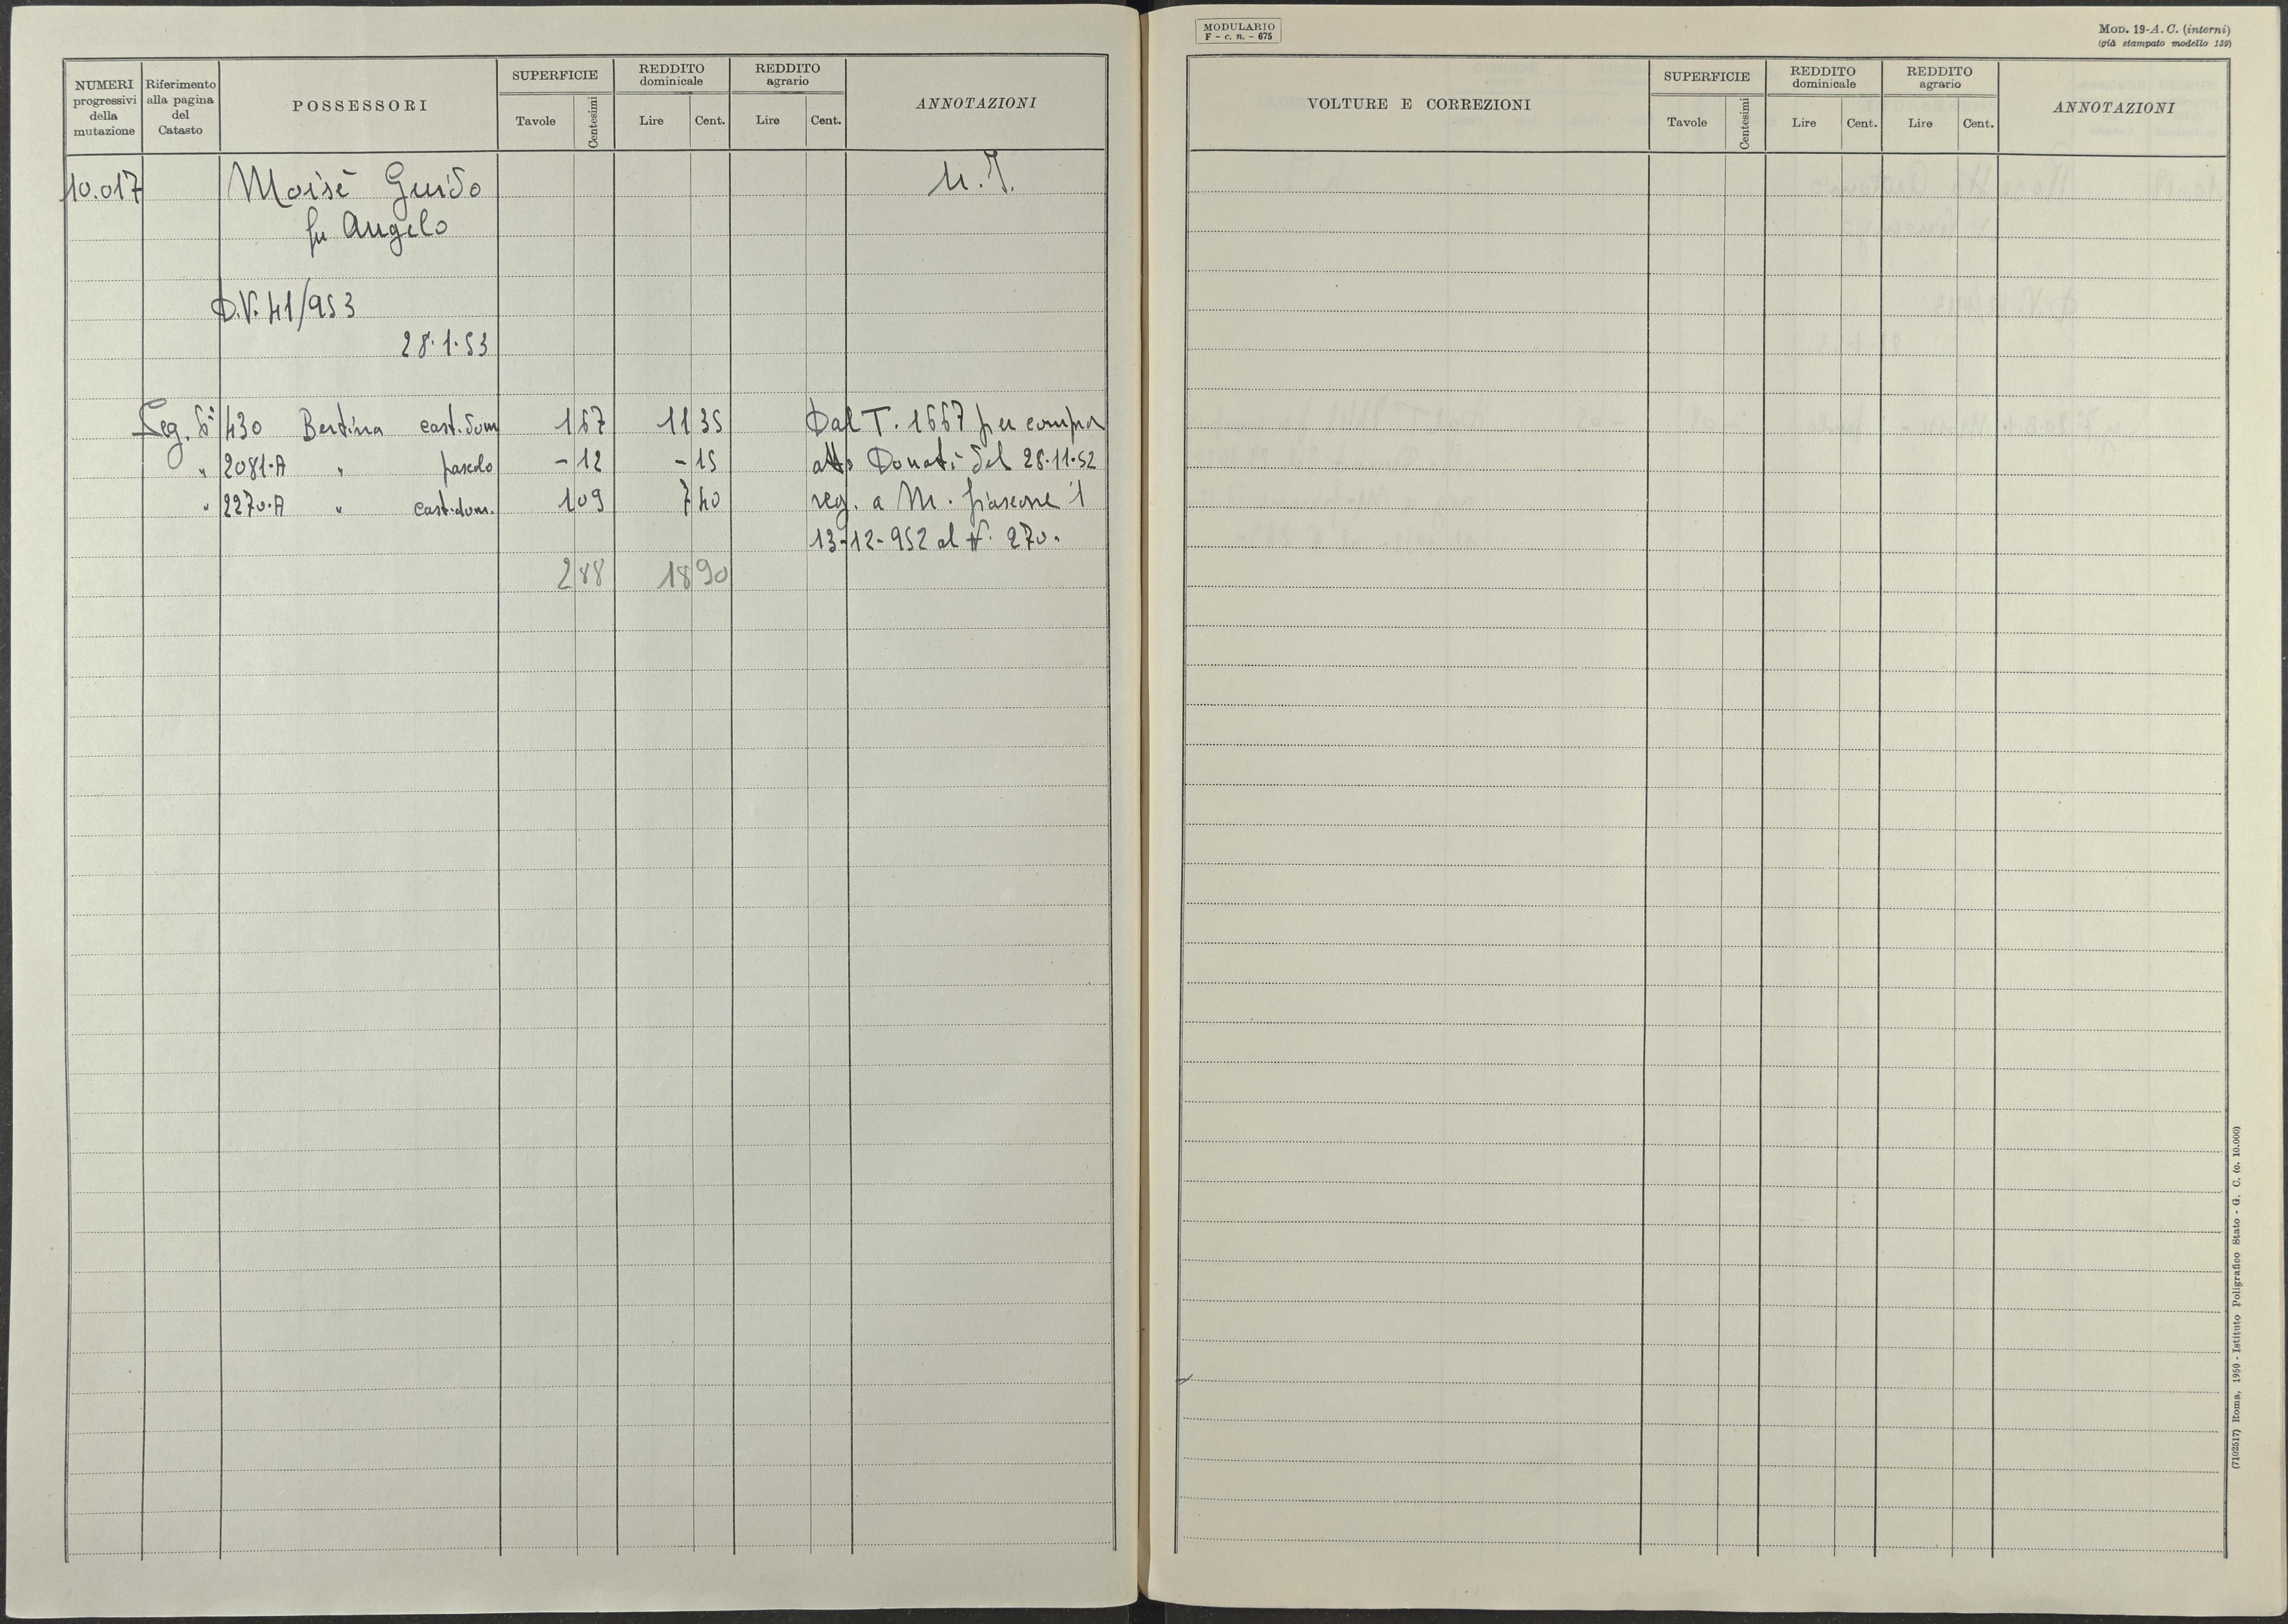 NUMERI progressivi della mutazione | Riferimento alla pagina del Catasto | POSSESSORI | SUPERFICIE Tavole Centesimi | REDDITO dominicale Lire Cent. | REDDITO agrario Lire Cent. | ANNOTAZIONI
10.017 Moisè Guido
fu Angelo
D.V. 41/953
28.1.53
430 Bertina cast. dom 1 67 11 35 Dal T. 1667 per compra
" 2081.A " pascolo - 12 - 15 atto Donati del 28.11.52
" 2270.A " cast. dom. 1 09 7 40 reg. a M.
13-12-952 al N. 270.
2 88 18 90
MODULARIO
F - c. n. - 675
MOD. 19-A. C. (interni)
(già stampato modello 139)
VOLTURE E CORREZIONI | SUPERFICIE Tavole Centesimi | REDDITO dominicale Lire Cent. | REDDITO agrario Lire Cent. | ANNOTAZIONI
(7102517) Roma, 1950 - Istituto Poligrafico Stato - G. C. (o. 10.000)